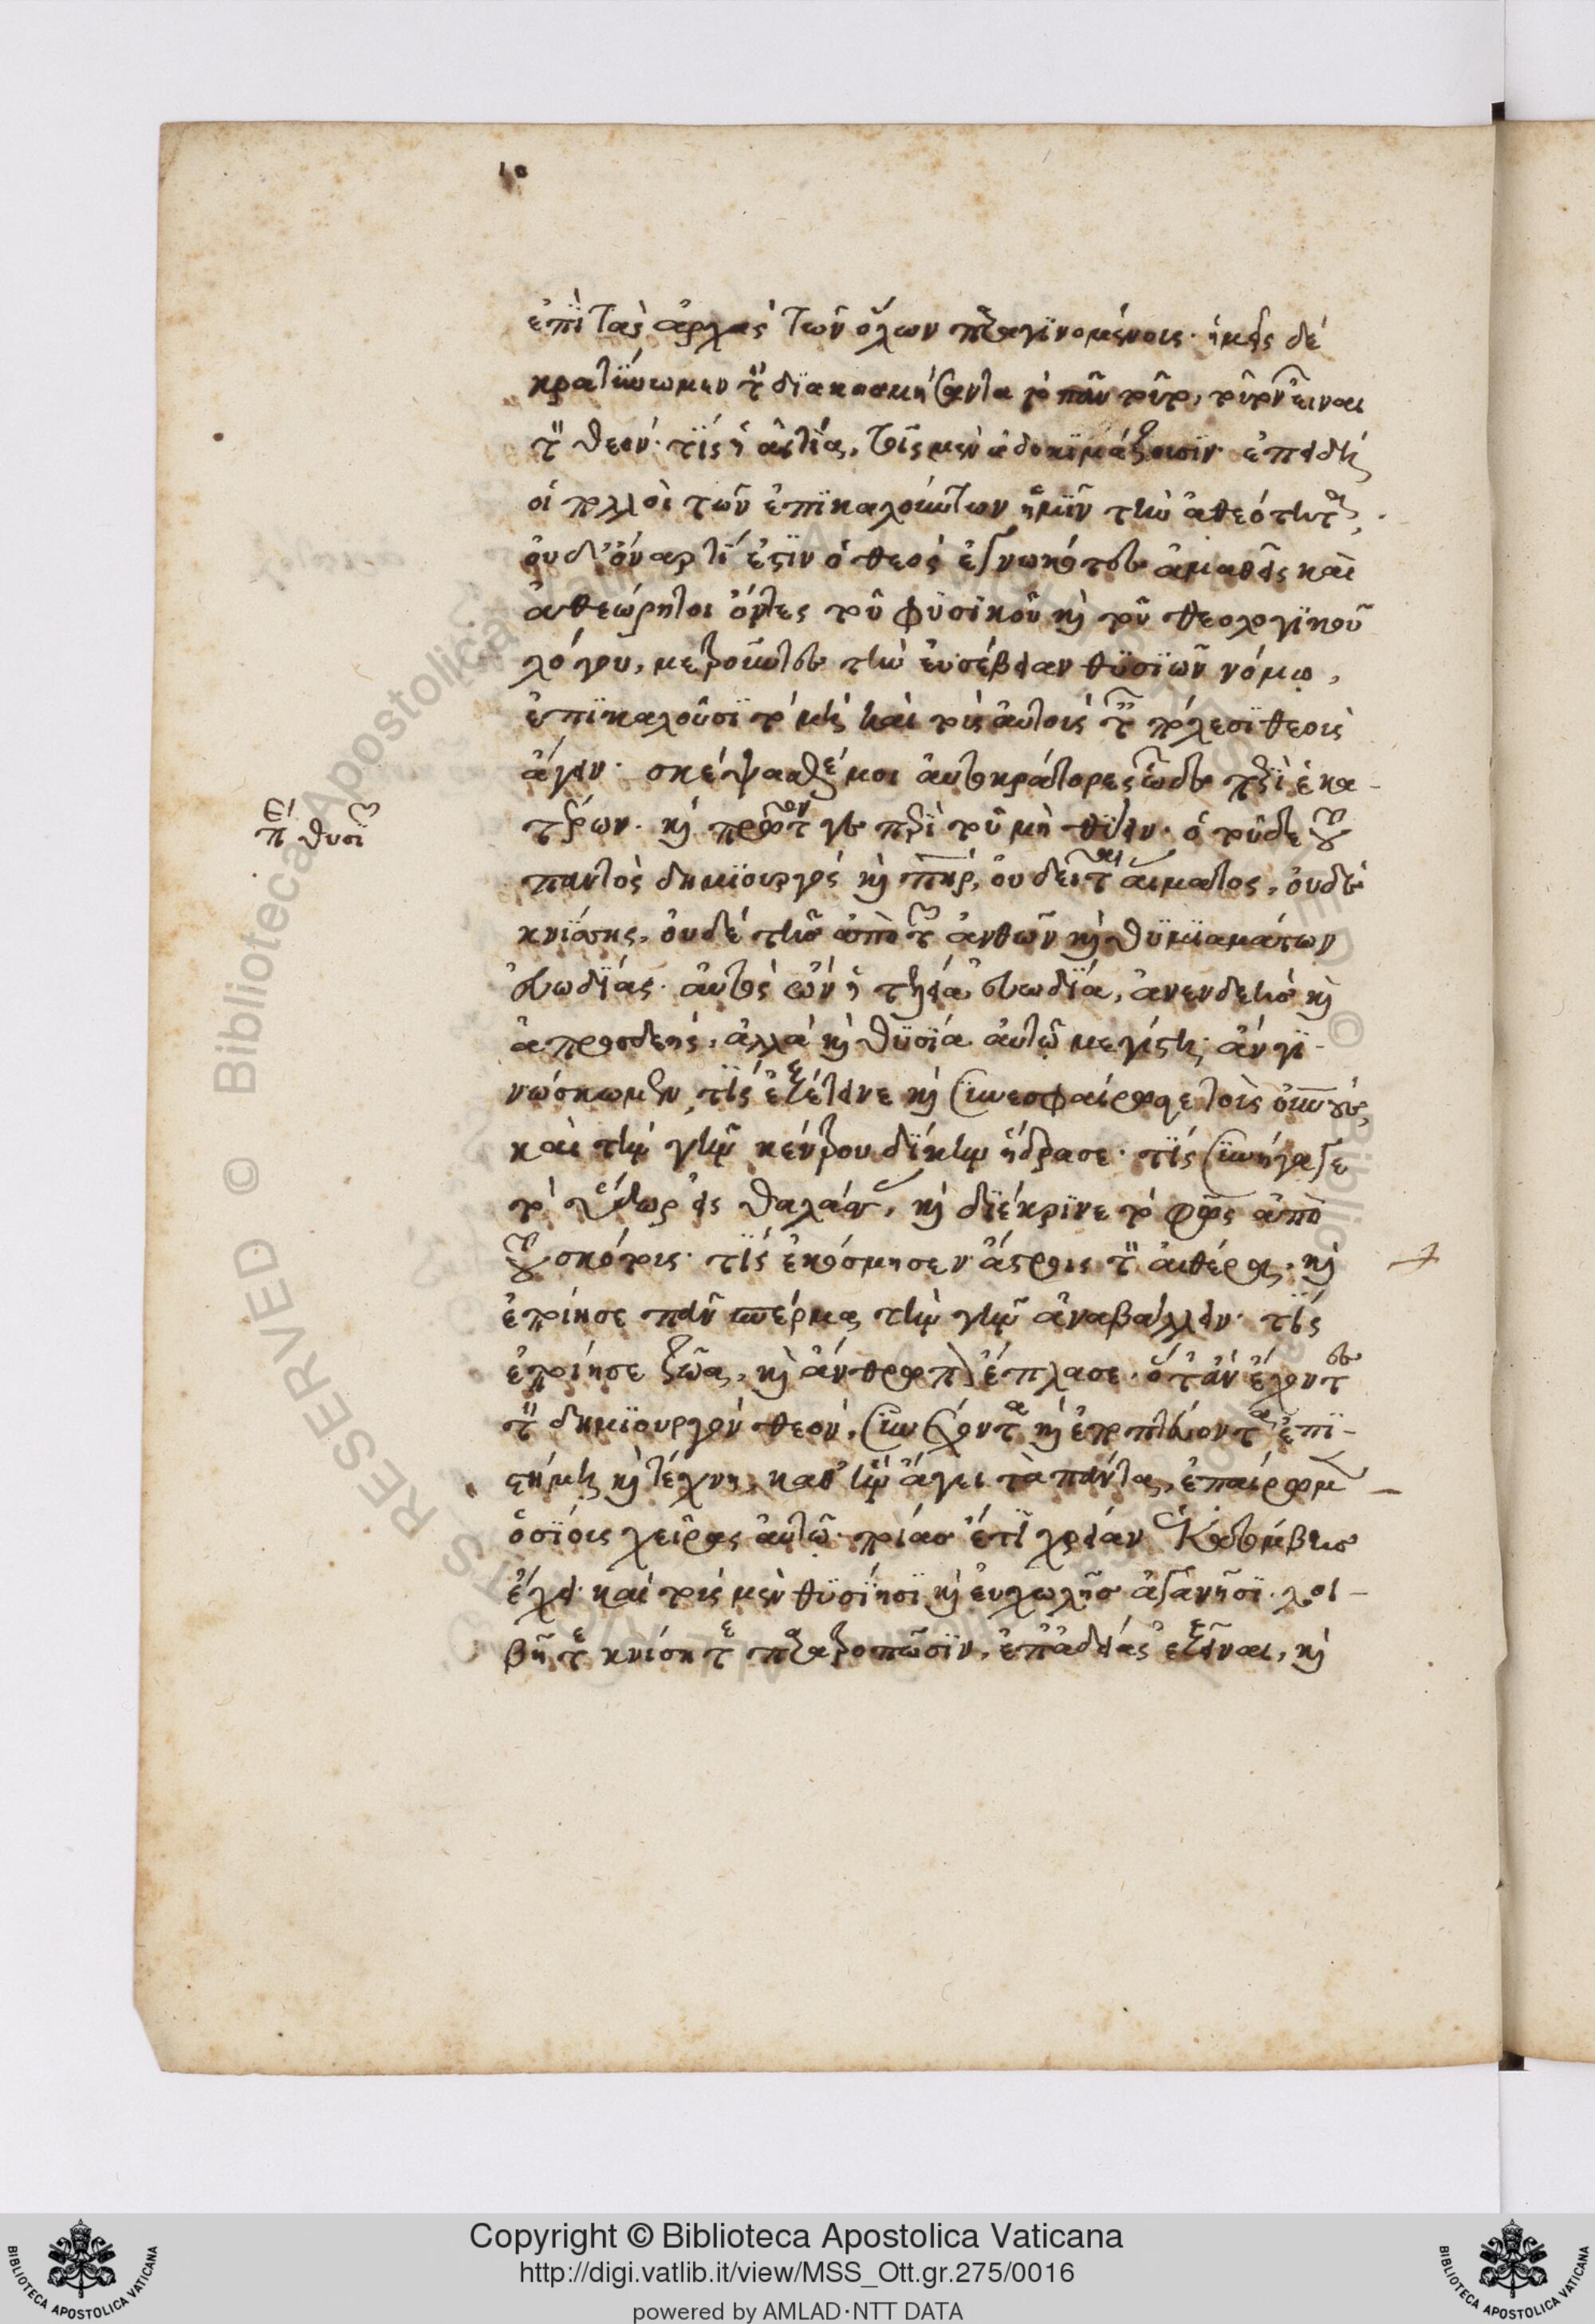 ἐπὶ τὰς ἀρχὰς τῶν ὅλων παραγινομένοις· ἡμεῖς δὲ
κρατύνωμεν τὸν διακοσμήσαντα τὸ πᾶν τοῦτο, τοῦτον εἶναι
τὸν θεόν· τίς ἡ αἰτία, τοῖς μὲν ἀδοκιμάζουσιν· ἐπειδὴ
οἱ πολλοὶ τῶν ἐπικαλούντων ἡμῖν τὴν ἀθεότητα,
οὐδ' ὄναρ τί ἐστιν ὁ θεὸς ἐγνωκότες ἀμαθεῖς καὶ
ἀθεώρητοι ὄντες τοῦ φυσικοῦ καὶ τοῦ θεολογικοῦ
λόγου, μετροῦντες τὴν εὐσέβειαν θυσιῶν νόμῳ,
ἐπικαλοῦσι τὸ μὴ καὶ τοὺς αὐτοὺς ταῖς πόλεσι θεοὺς
ἄγειν· σκέψασθέ μοι αὐτοκράτορες ὧδε περὶ ἑκα-
τέρων· καὶ πρῶτόν γε περὶ τοῦ μὴ θύειν· ὁ τοῦδε τοῦ
παντὸς δημιουργὸς καὶ πηρ, οὐ δεῖται αἵματος, οὐδὲ
κνίσης, οὐδὲ τῆς ἀπὸ τῶν ἀνθῶν καὶ θυμιαμάτων
εὐωδίας· αὐτὸς ὢν ἡ τελεία εὐωδία, ἀνενδεὴς καὶ
ἀπροσδεής· ἀλλὰ καὶ θυσία αὐτῷ μεγίστη· ἂν γι-
νώσκωμεν τίς ἐξέτεινε καὶ συνεσφαίρωσε τοὺς οὐνούς,
καὶ τὴν γῆν κέντρου δίκην ἥδρασε· τίς συνήγαγε
τὸ ὕδωρ εἰς θαλάσσας, καὶ διέκρινε τὸ φῶς ἀπὸ
τοῦ σκότους· τίς ἐκόσμησεν ἄστροις τὸν αἰθέρα, καὶ
ἐποίησε πᾶν σπέρμα τὴν γῆν ἀναβάλλειν· τίς
ἐποίησε ζῶα, καὶ ἄνθρωπον ἔπλασε· ὅταν ἔχοντες
τὸν δημιουργὸν θεὸν, συνέχοντα καὶ ἐποπτεύοντα ἐπι-
στήμῃ καὶ τέχνῃ, καθ' ἣν ἄγει τὰ πάντα, ἐπαίρωμεν
ὁσίους χεῖρας αὐτῷ· ποίας ἔτι χρείαν ἑκατόμβης
ἔχει· καὶ τοὺς μὲν θυσίησι καὶ εὐχωλῆς ἀγανῆσι· λοι-
βῇ τε κνίσῃ τε παρατρωπῶσιν, ἐπ' ἀδείας ἐξεῖναι, καὶ
περὶ θυσιῶν
Copyright © Biblioteca Apostolica Vaticana
http://digi.vatlib.it/view/MSS_Ott.gr.275/0016
powered by AMLAD·NTT DATA
BIBLIOTECA APOSTOLICA VATICANA
BIBLIOTECA APOSTOLICA VATICANA